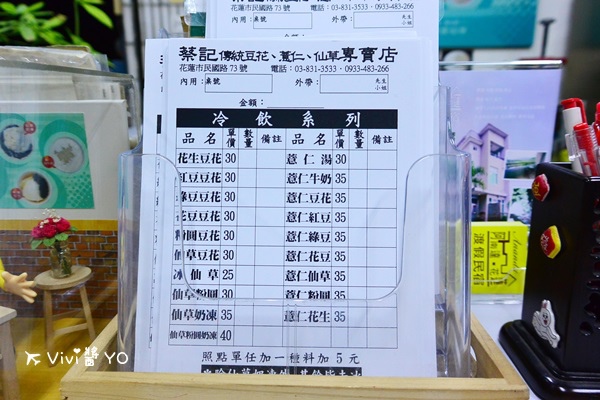 蔡記傳統豆花、薏仁、仙草專賣店
花蓮市民國路73號 電話：03-831-3533．0933-483-266
內用：桌號 外帶： 先生 小姐
金額：
冷飲系列
品名 單價 數量 備註 品名 單價 數量 備註
花生豆花 30 薏仁湯 30
紅豆豆花 30 薏仁牛奶 35
綠豆豆花 30 薏仁豆花 35
花豆豆花 30 薏仁紅豆 35
粉圓豆花 30 薏仁綠豆 35
仙草豆花 30 薏仁花豆 35
冰仙草 25 薏仁仙草 35
仙草粉圓 30 薏仁粉圓 35
仙草奶凍 35 薏仁花生 35
仙草粉圓奶凍 40
照點單任加一種料加5元
渡假民宿
ViVi醬YO